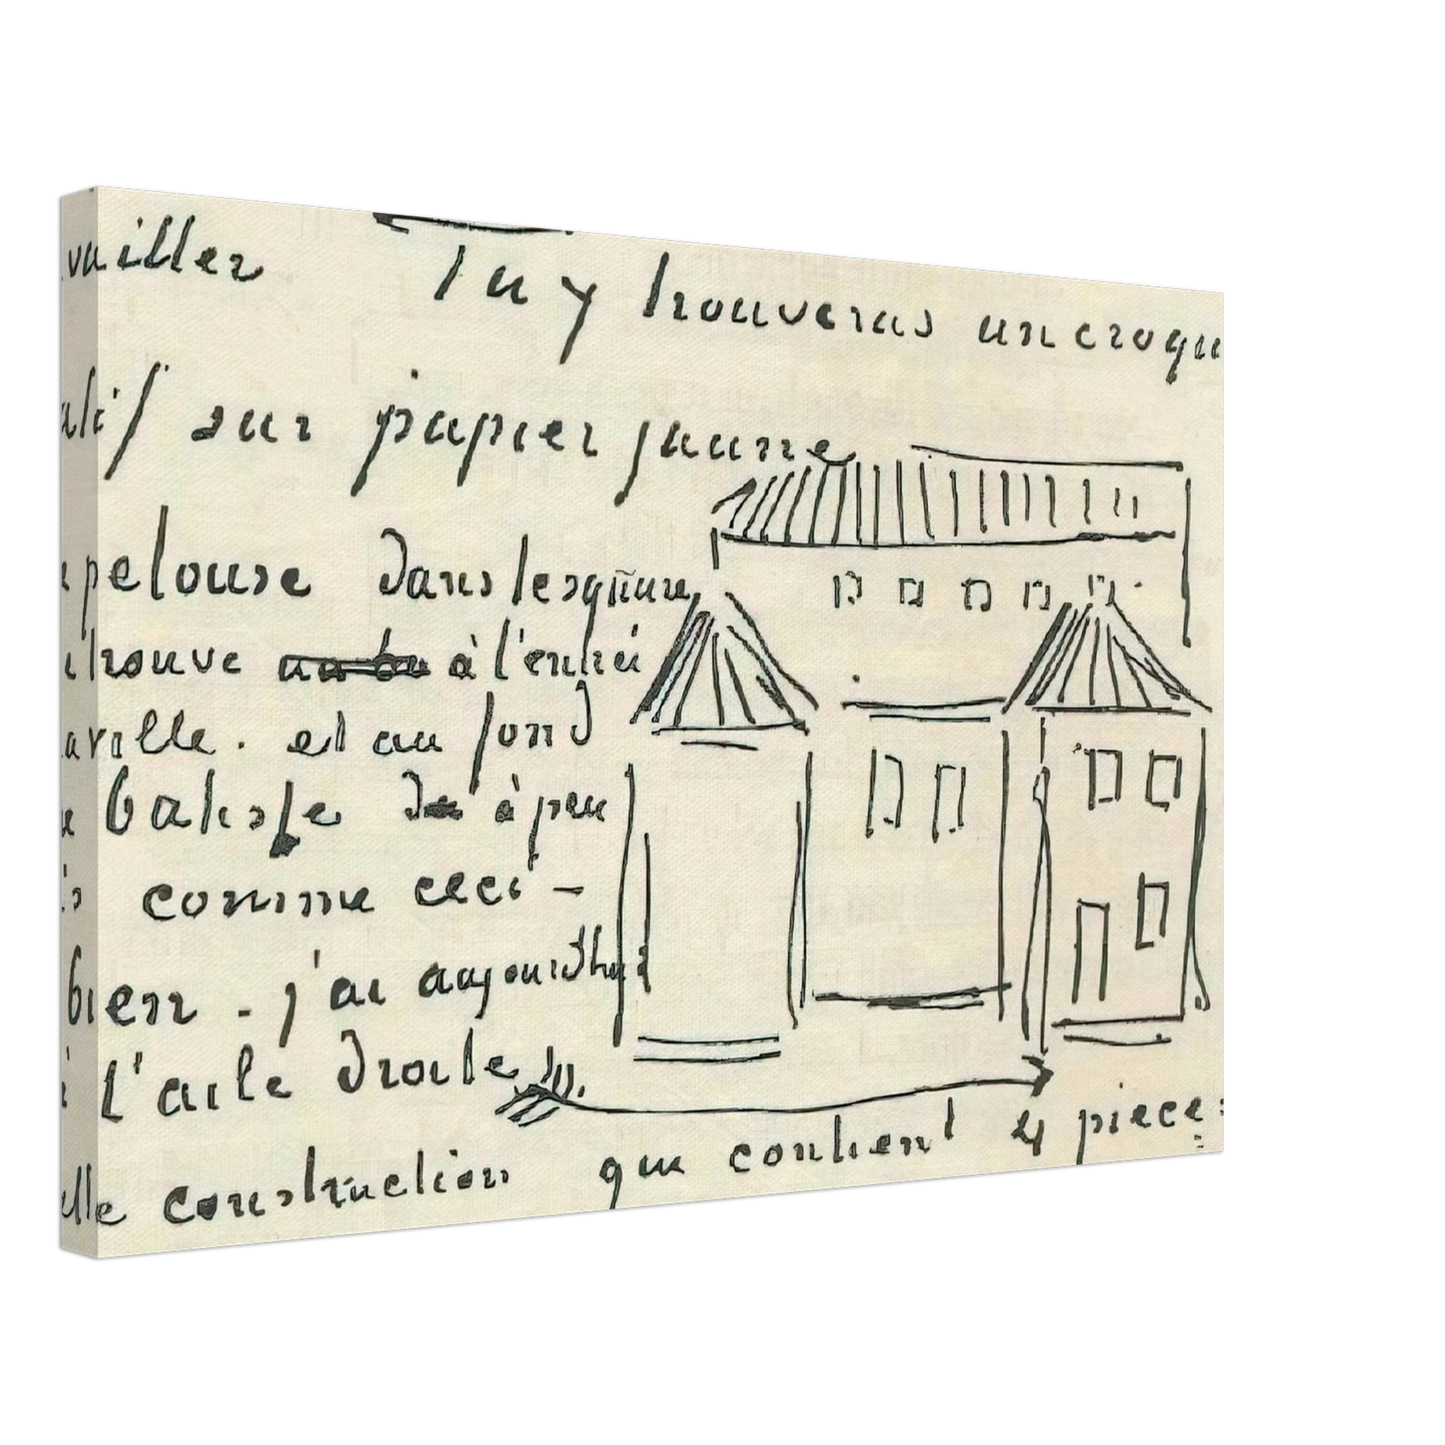 vailler Tu y trouveras un croqu
atif sur papier jaune
pelouse dans le square
trouve à l'entrée
a ville. et au fond
batisse de à peu
s comme ceci -
bien - j'ai aujourdhui
l'aile droite
elle construction qui contient 4 pieces